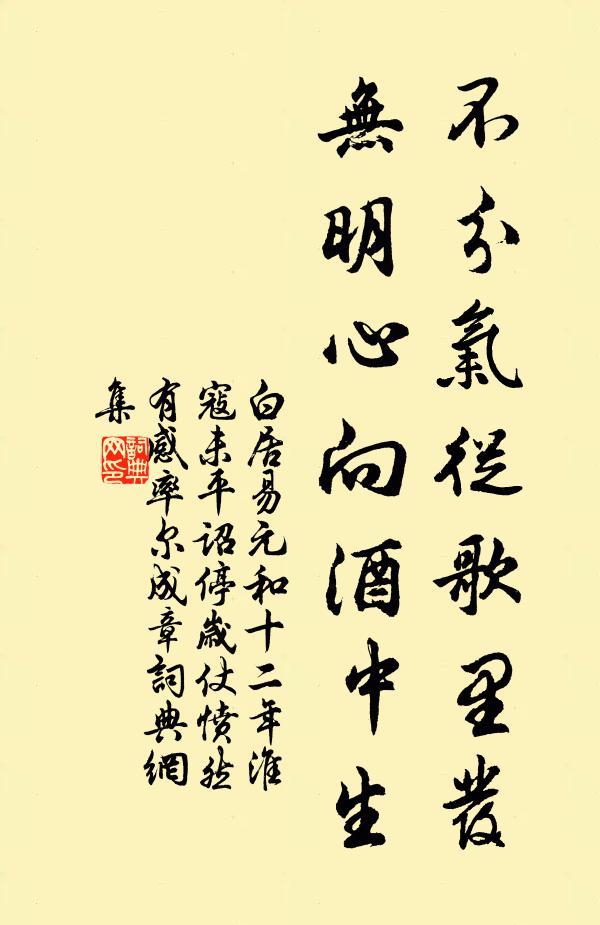 不分氣從歌里發
無明心向酒中生
白居易元和十二年淮
寇未平詔停歲仗憤然
有感率尔成章詞典網
集
詞典
网印